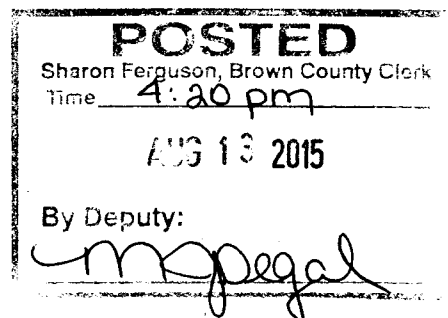 POSTED
Sharon Ferguson, Brown County Clerk
Time 4:20 pm
AUG 13 2015
By Deputy: